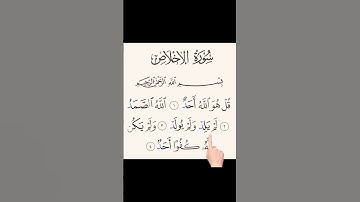 سُورَةُ الإِخْلَاصِ
بِسْمِ اللَّهِ الرَّحْمَٰنِ الرَّحِيمِ
قُلْ هُوَ اللَّهُ أَحَدٌ ١ اللَّهُ الصَّمَدُ
٢ لَمْ يَلِدْ وَلَمْ يُولَدْ ٣ وَلَمْ يَكُن
لَّهُ كُفُوًا أَحَدٌ ٤